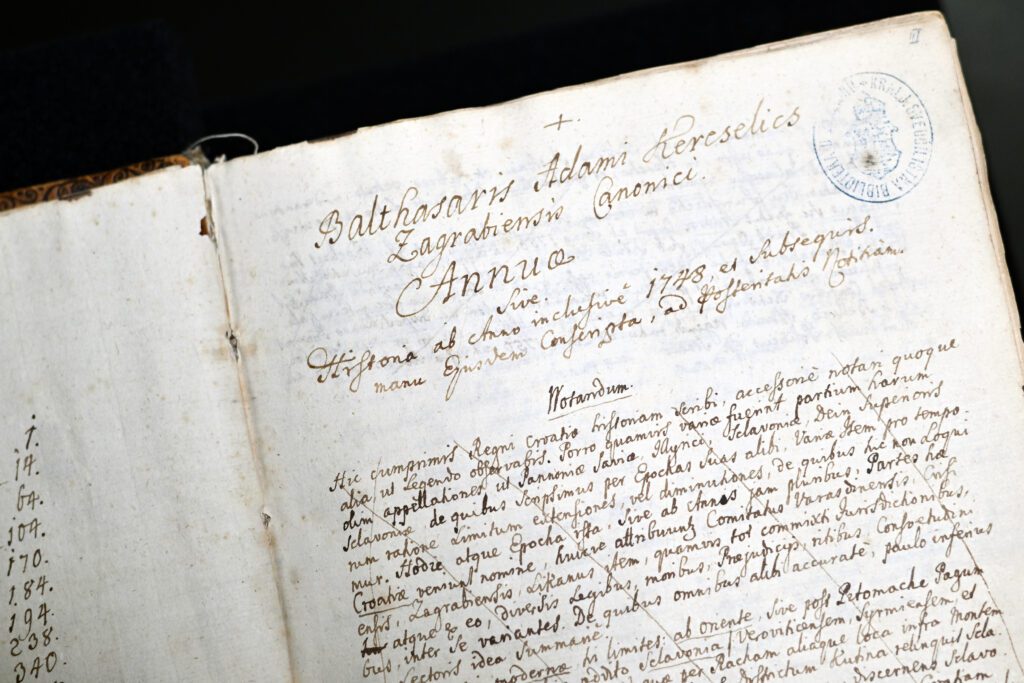 1.
14.
64.
104.
170.
184.
194.
238.
340.
III
KRALJ. SVEUČILIŠNA BIBLIOTEKA
+.
Balthasaris Adami Kercselics
Zagrabiensis Canonici.
Annuæ
Sive.
Historia ab Anno inclusivè 1748, et Subsequis.
manu Ejusdem Conscripta, ad Posteritatis Notitiam.
Notandum.
Hic cumprimis Regni Croatiæ historiam scribi, accessoriè notari quoque
alia ut Legendo observabis. Porro quamvis variæ fuerint partium harum
dim appellationes ut Pannoniæ Saviæ, Illyrici, Sclavoniæ, Dein Superioris
Sclavoniæ de quibus Scripsimus per Epochas suas alibi, Variæ Item pro tempo:
rum ratione Limitum extensiones, vel diminutiones, de quibus hic non Loqui
mur. Hodie atque Epocha ista, sive ab Annis jam pluribus, Partes hæ
Croatiæ veniunt nomine, huicve attribuunt Comitatus Varasdinensis, Crisi
ensis, Zagrabiensis, Likanus item, quamvis tot commixti Jurisdictionibus,
atque ex eo, diversis Legibus, moribus, Præjudicijs, ritibus Consvetudini
bus, inter se variantes. De quibus omnibus alibi accurate, paulo inferius
Lectoris idea summarie.
modernæ, hi limites: ab oriente, sive post Petomache Pagum
addito Sclavonia, Veroviticensem, Syrmiensem et
per Racham aliaque Loca infra Montem
Districtum Kutina relinquis Scla
discernens Sclavo.